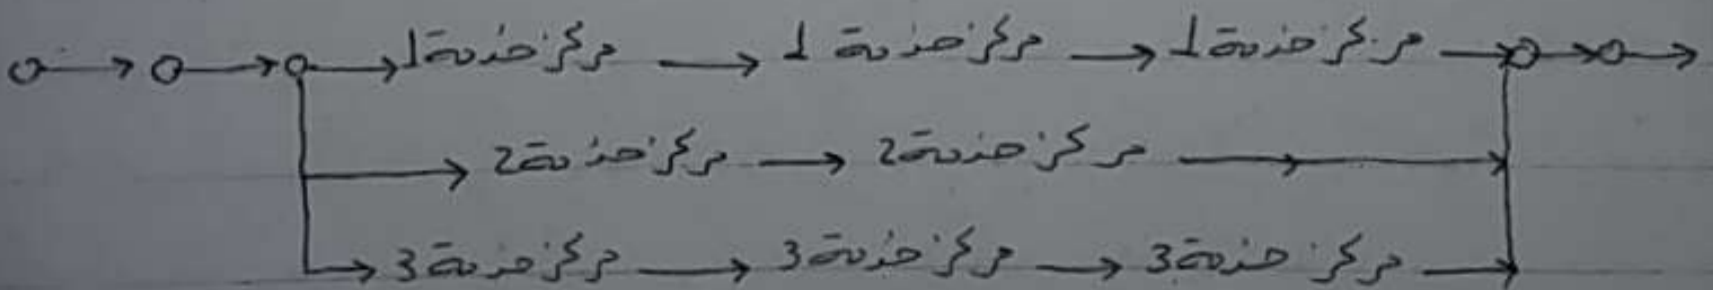 مركز خدمة 1 مركز خدمة 1 مركز خدمة 1
مركز خدمة 2 مركز خدمة 2
مركز خدمة 3 مركز خدمة 3 مركز خدمة 3